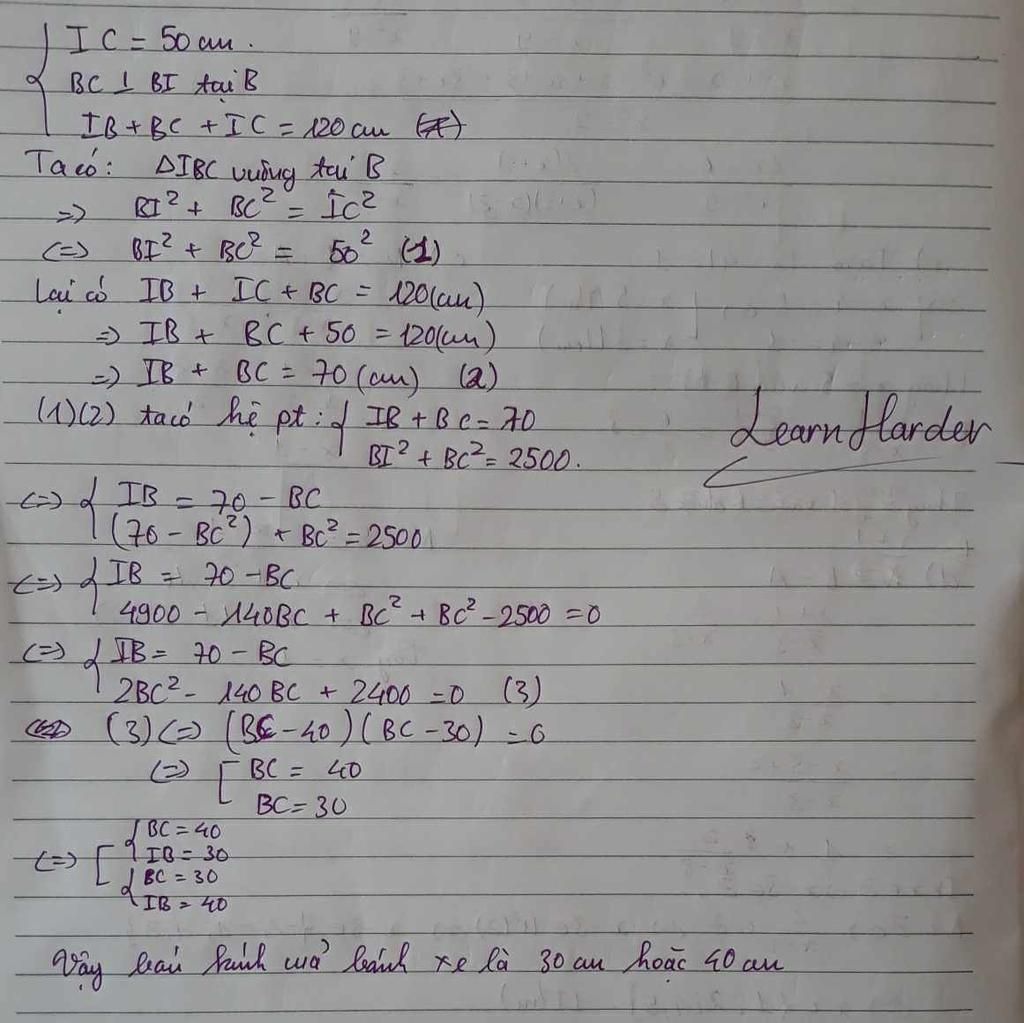 IC = 50 cm.
BC ⊥ BI tại B
IB + BC + IC = 120 cm (*)
Ta có: ΔIBC vuông tại B
=> BI² + BC² = IC²
<=> BI² + BC² = 50² (1)
Lại có IB + IC + BC = 120 (cm)
=> IB + BC + 50 = 120 (cm)
=> IB + BC = 70 (cm) (2)
(1)(2) ta có hệ pt: { IB + BC = 70
BI² + BC² = 2500.
Learn Harder
<=> { IB = 70 - BC
(70 - BC²) + BC² = 2500
<=> { IB = 70 - BC
4900 - 140BC + BC² + BC² - 2500 = 0
<=> { IB = 70 - BC
2BC² - 140BC + 2400 = 0 (3)
(3) <=> (BC - 40)(BC - 30) = 0
<=> [ BC = 40
BC = 30
<=> [ { BC = 40
IB = 30
{ BC = 30
IB = 40
Vậy bán kính của bánh xe là 30 cm hoặc 40 cm